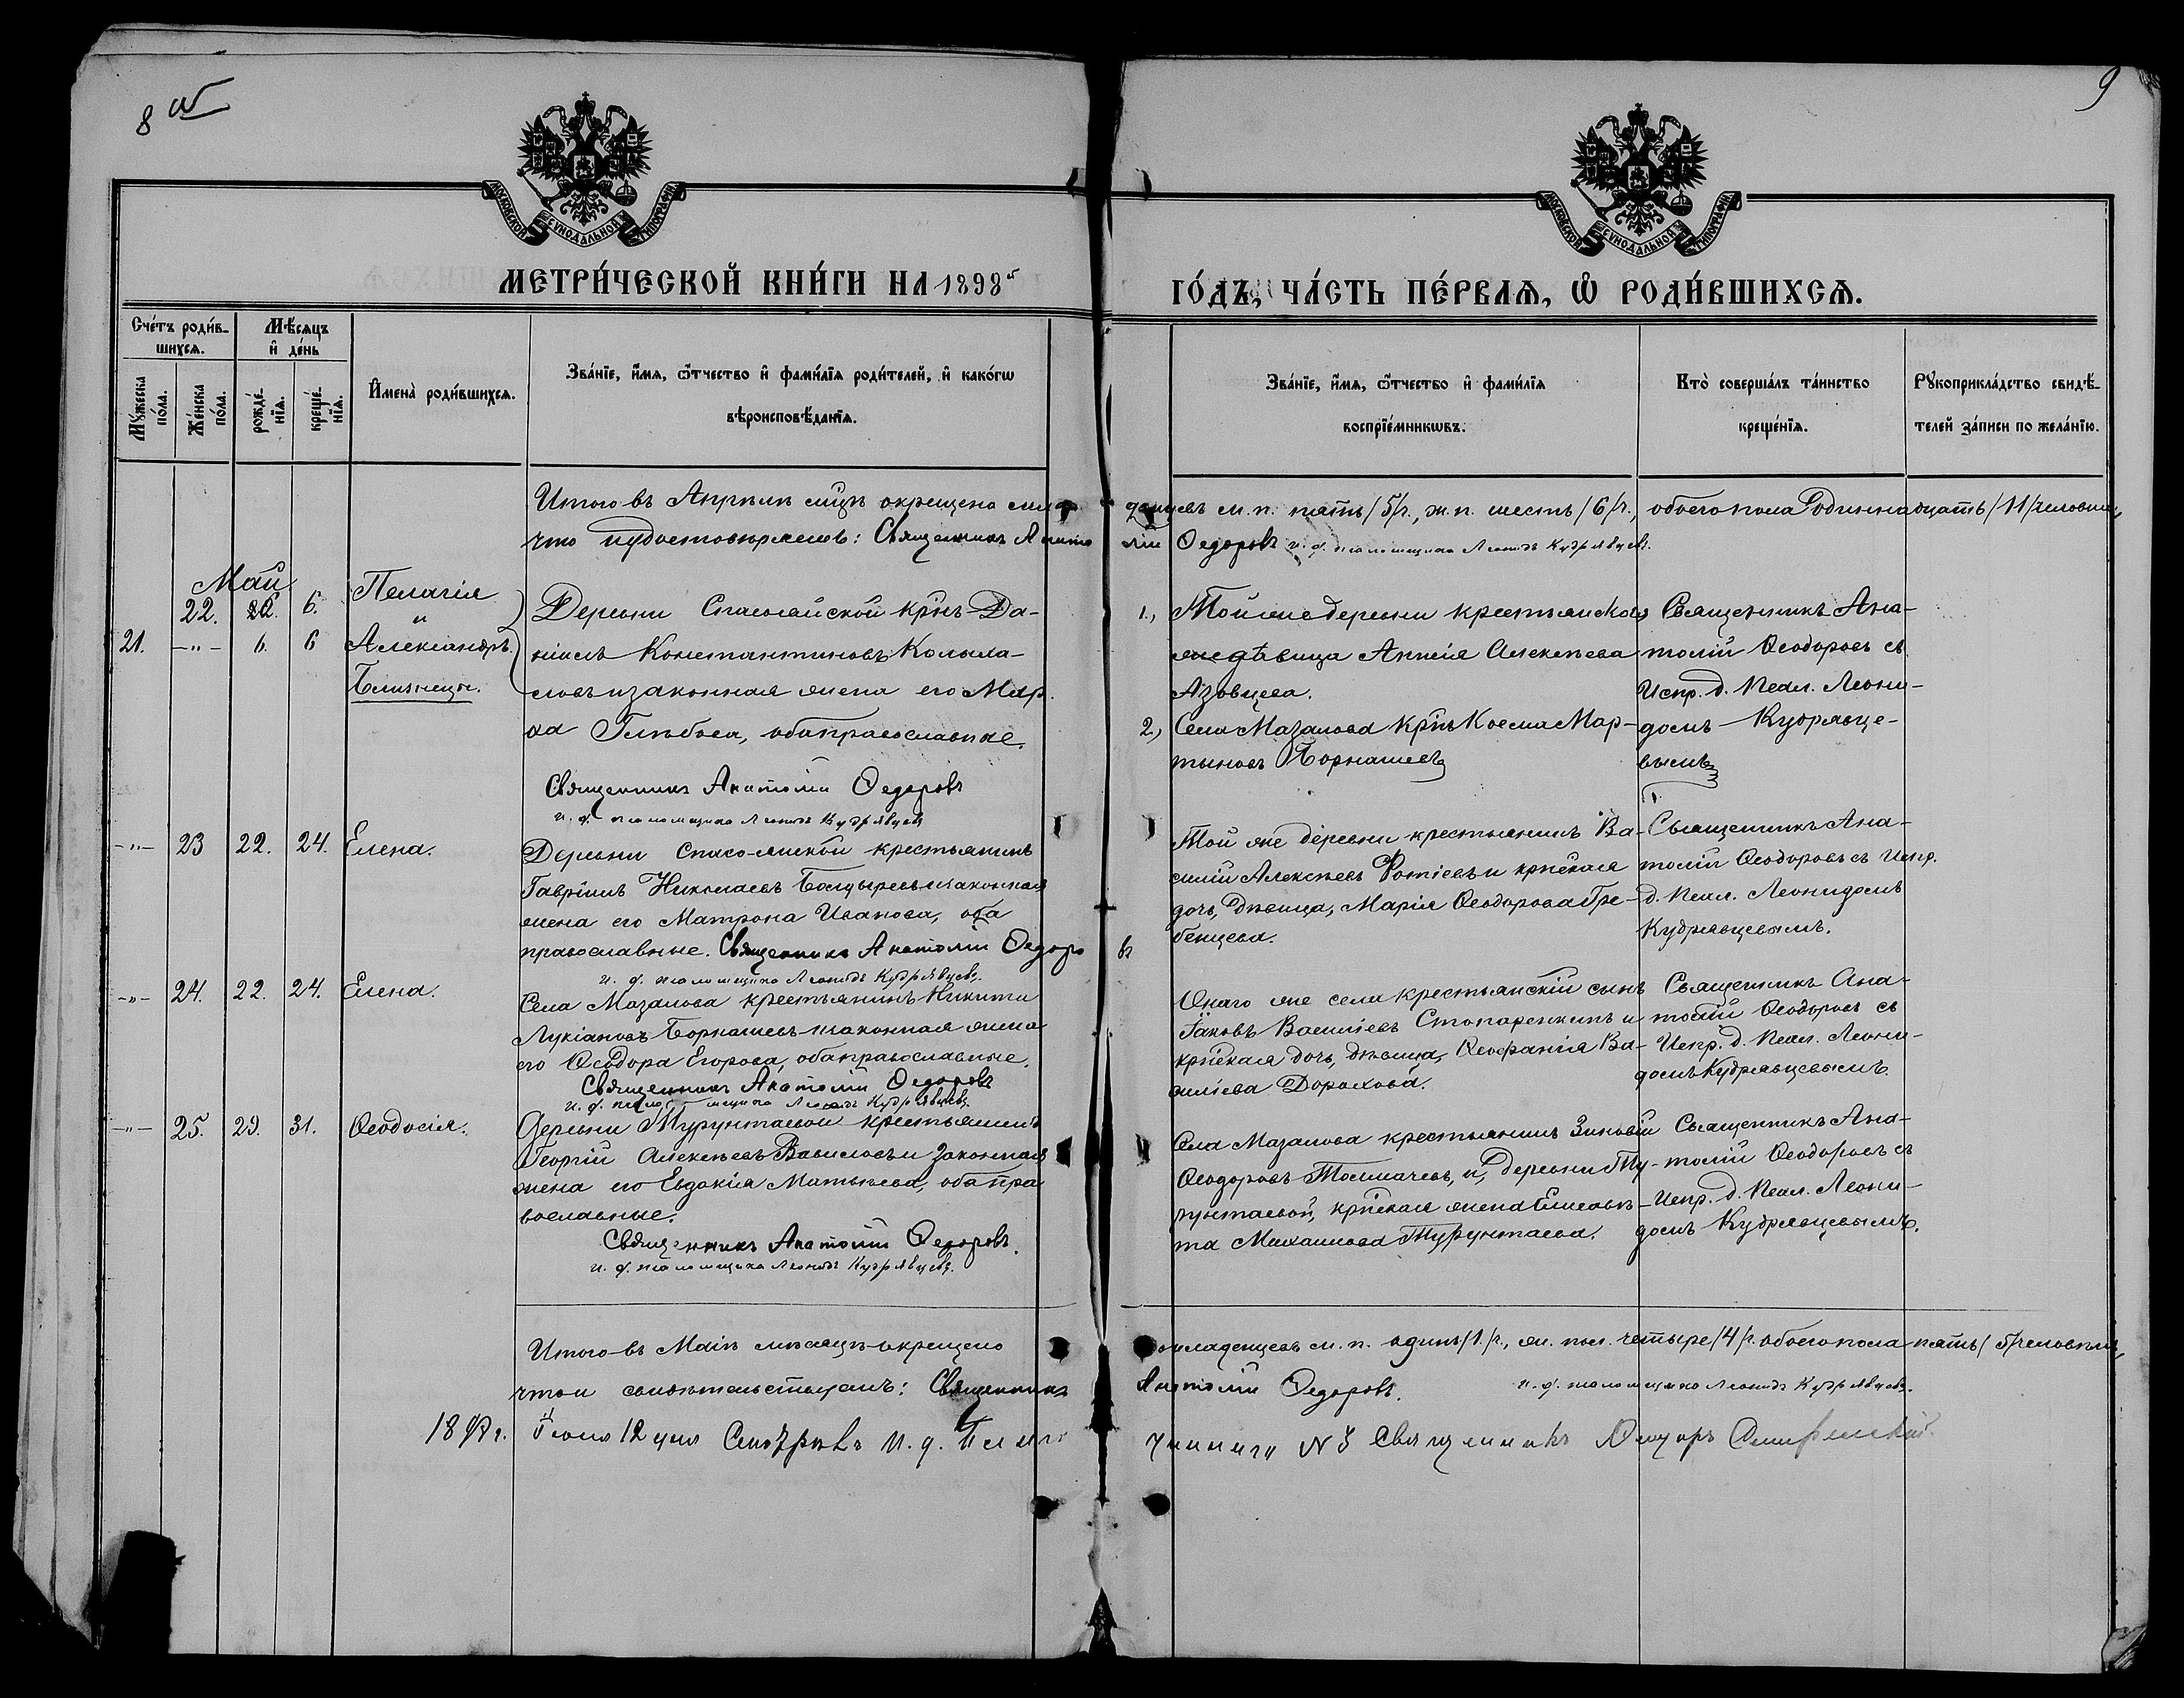 8 об
9
МОСКОВСКОЙ СѴНОДАЛЬНОЙ ТИПОГРАФІИ
МОСКОВСКОЙ СѴНОДАЛЬНОЙ ТИПОГРАФІИ
МЕТРИ́ЧЕСКОЙ КНИ́ГИ НА 1898й
ГО́ДЪ, ЧА́СТЬ ПЕ́РВАЯ, Ѡ҆ РОДИ́ВШИХСЯ.
Сче́тъ роди́в-
шихся.
Мѣ́сяцъ
и҆ де́нь
Мꙋ́жеска по́ла.
Же́нска по́ла.
рожде́-
нїя.
креще́-
нїя.
И҆мена̀ роди́вшихся.
Зва́нїе, и҆́мя, ѻ҆́тчество и҆ фами́лїя роди́телей, и҆ како́гѡ
вѣроисповѣ́данїя.
Зва́нїе, и҆́мя, ѻ҆́тчество и҆ фами́лїя
воспрїе́мникѡвъ.
Кто̀ соверша́лъ та́инство
креще́нїя.
Рꙋкоприкла́дство свидѣ́-
телей за́писи по жела́нїю.
Итого въ Апрѣлѣ мцѣ окрещено мла
денцевъ м. п. пять /5/ч., ж. п. шесть /6/ч., обоего пола одиннадцать /11/человѣкъ,
что удостовѣряемъ: Священникъ Анато
лій Ѳедоровъ и. д. псаломщика Леонидъ Кудрявцевъ.
Май
22. 6. Пелагія
и
21. -"- 6. 6 Александръ
Близнецы.
Деревни Спасской крнъ Да-
ніилъ Константиновъ
и законная жена его Мар.
ѳа Глѣбова, оба православные.
Священникъ Анатолій Ѳедоровъ
и. д. псаломщика Леонидъ Кудрявцевъ
1., Той же деревни крестьянская
дѣвица Анисія Алексѣева
Азовцева.
2., Села Мазалова крнъ Косма Мар-
тыновъ Борнашевъ
Священникъ Ана-
толій Ѳеодоровъ съ
Испр. д. Псал. Леони-
домъ Кудрявце-
вымъ
-"- 23 22. 24. Елена.
Деревни Спасской крестьянинъ
Гавріилъ Николаевъ Болдыревъ и законная
жена его Матрона Иванова, оба
православные. Священникъ Анатолій Ѳедоро
въ
и. д. псаломщика Леонидъ Кудрявцевъ.
Той же деревни крестьянинъ Ва-
силій Алексѣевъ Фотіевъ и крнская
дочь, дѣвица, Марія Ѳеодорова Гре-
бенцева.
Священникъ Ана-
толій Ѳеодоровъ съ Испр.
д. Псал. Леонидомъ
Кудрявцевымъ.
-"- 24. 22. 24. Елена.
Села Мазалова крестьянинъ Никита
Лукіановъ Борнашевъ и законная жена
его Ѳеодора Егорова, оба православные.
Священникъ Анатолій Ѳедоровъ
и. д. псаломщика Леонидъ Кудрявцевъ.
Онаго же села крестьянскій сынъ
Іаковъ Василіевъ и
крнская дочь, дѣвица, Ѳеофанія Ва-
силіева Дорохова.
Священникъ Ана-
толій Ѳеодоровъ съ
Испр. д. Псал. Леони-
домъ Кудрявцевымъ.
-"- 25. 29. 31. Ѳеодосія.
Деревни Турунтаевой крестьянинъ
Георгій Алексѣевъ Вавиловъ и законная
жена его Евдокія Матвѣева, оба пра
вославные.
Священникъ Анатолій Ѳедоровъ.
и. д. псаломщика Леонидъ Кудрявцевъ.
Села Мазалова крестьянинъ Зиновій
Ѳеодоровъ Толмачевъ, и, деревни Ту-
рунтаевой, крнская жена Елисаве-
та Михаилова Турунтаева.
Священникъ Ана-
толій Ѳеодоровъ съ
Испр. д. Псал. Леони-
домъ Кудрявцевымъ.
Итого въ Маѣ мѣсяцѣ окрещено
младенцевъ м. п. одинъ /1./ч., ж. пол. четыре /4/ч. обоего пола пять /5/человѣкъ,
что и свидѣтельствуемъ: Священникъ
Анатолій Ѳедоровъ. и. д. псаломщика Леонидъ Кудрявцевъ.
1898 г. Іюня 12 дня Смотрѣлъ И. д. Благо
чиннаго N 3 Священникъ